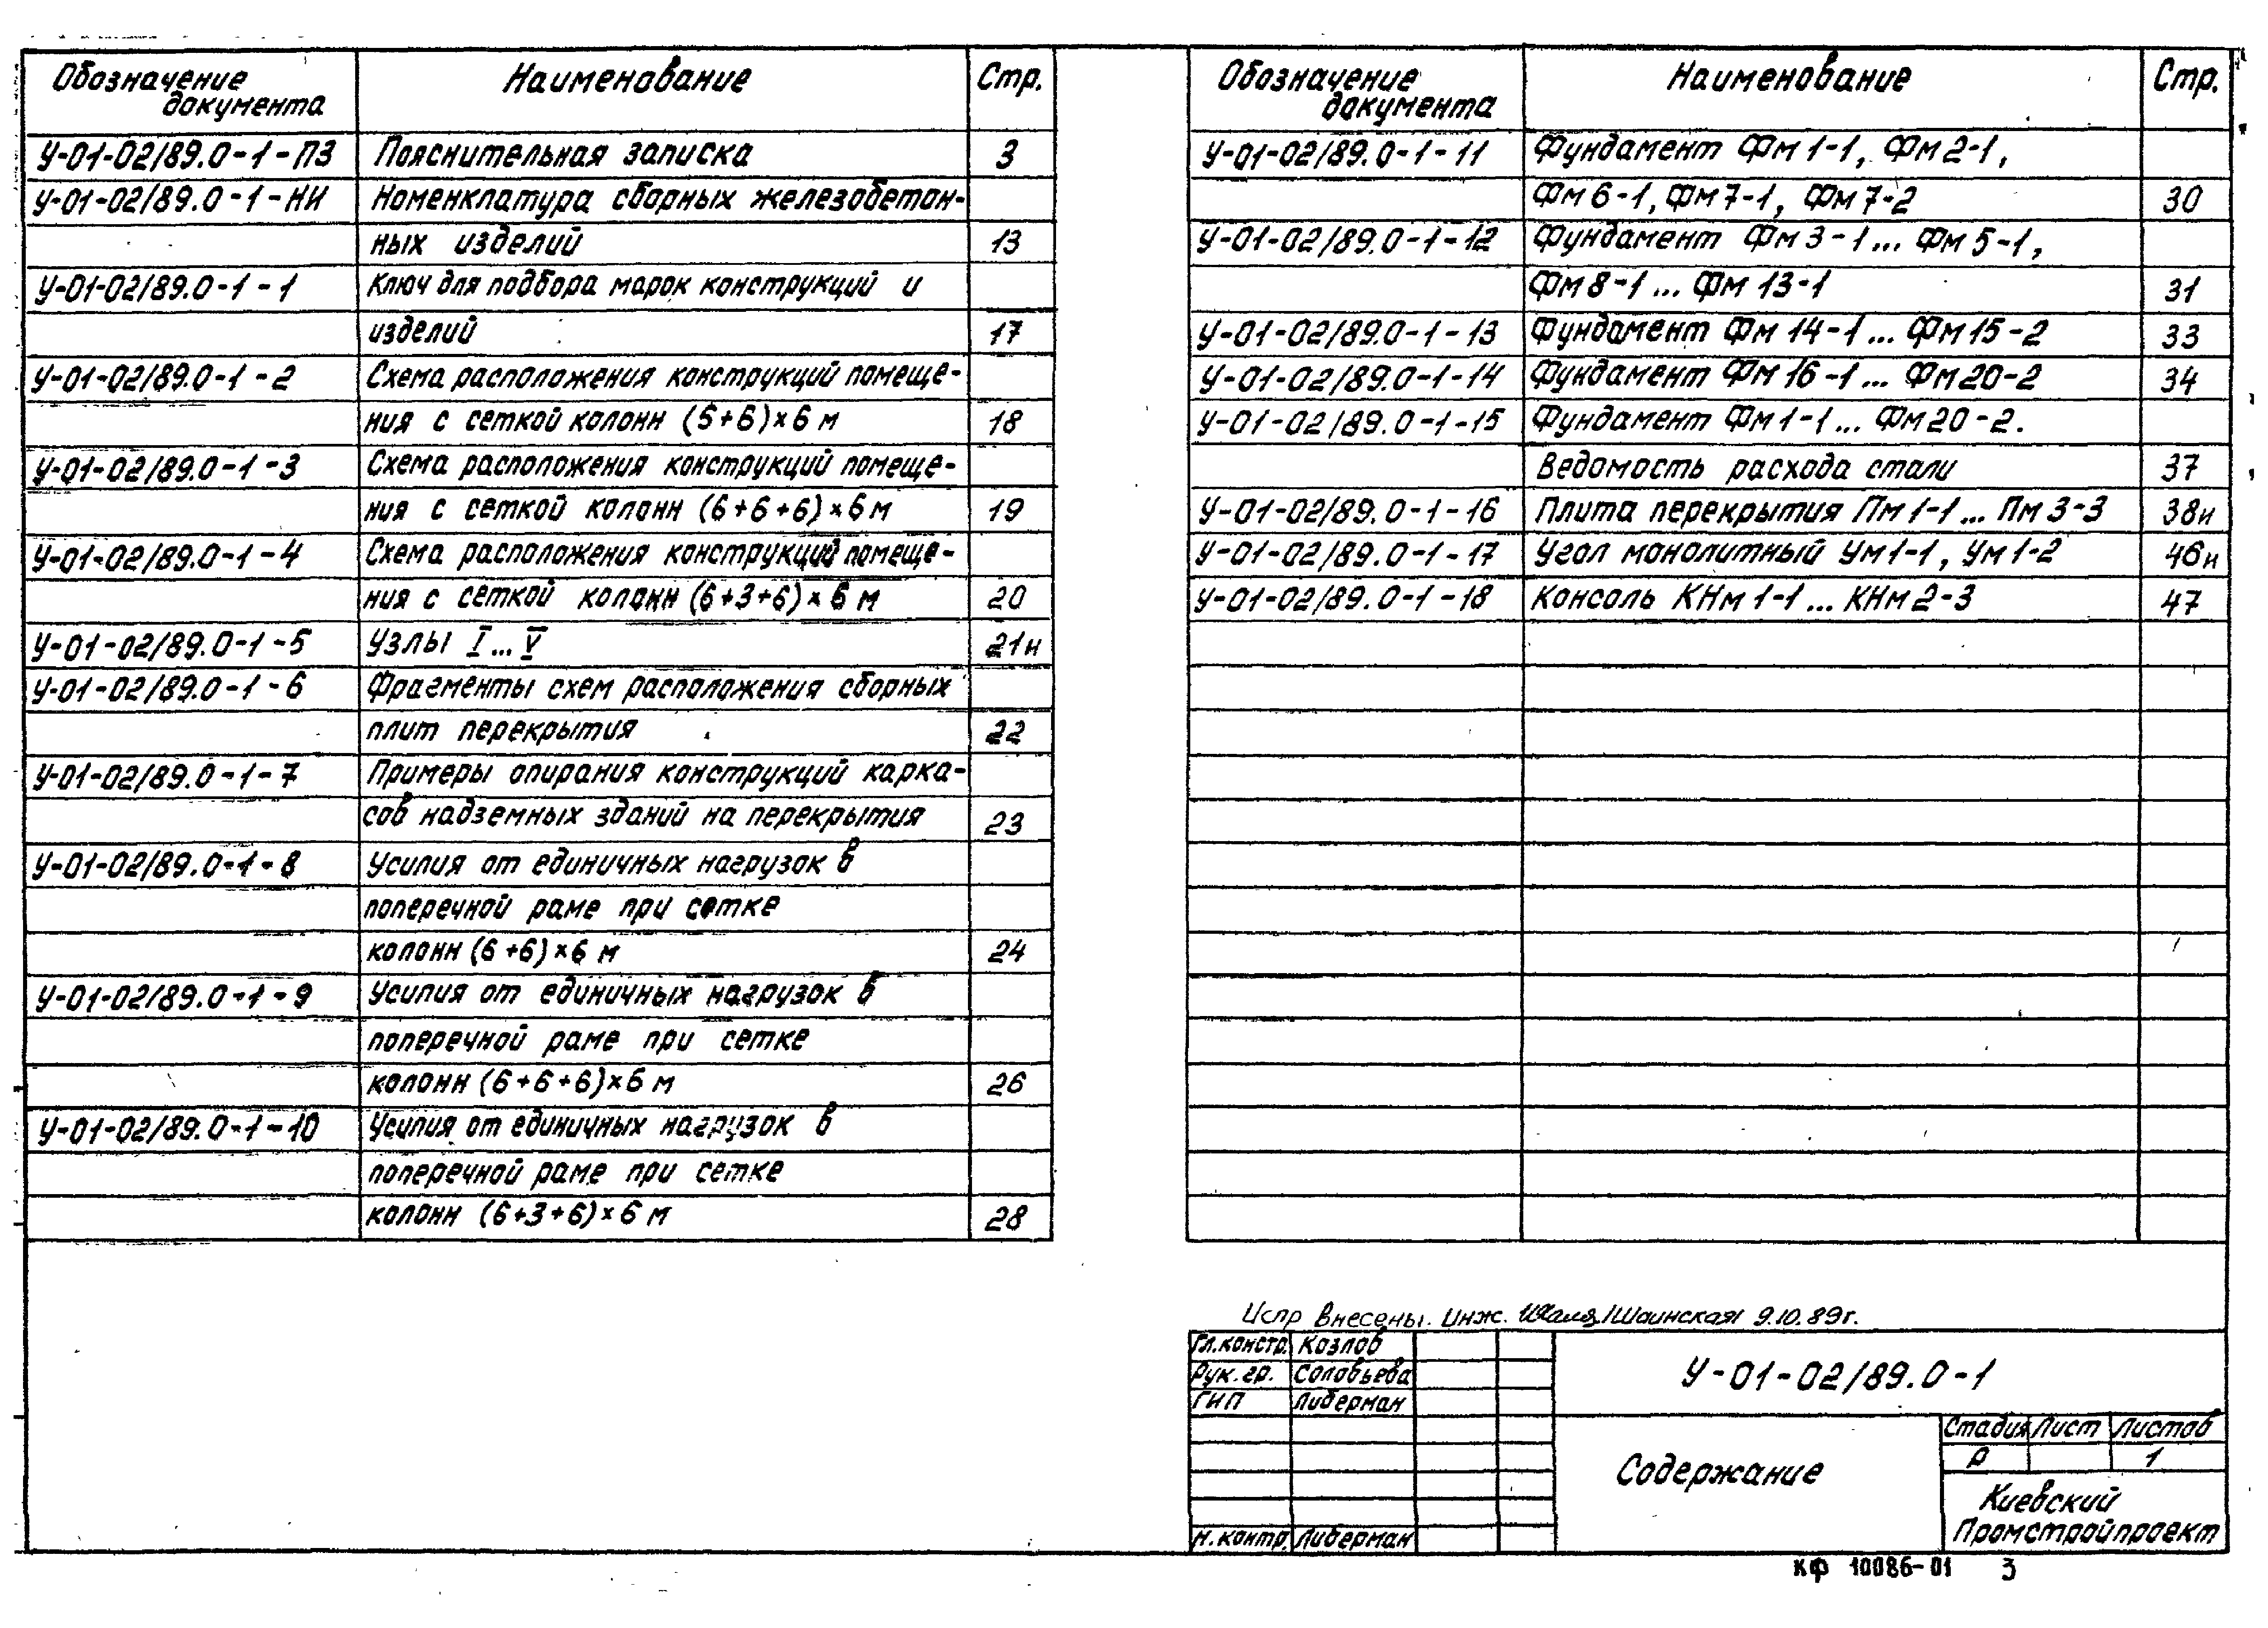 Обозначение документа Наименование Стр.
У-01-02/89.0-1-ПЗ Пояснительная записка 3
У-01-02/89.0-1-НИ Номенклатура сборных железобетон-
ных изделий 13
У-01-02/89.0-1-1 Ключ для подбора марок конструкций и
изделий 17
У-01-02/89.0-1-2 Схема расположения конструкций помеще-
ния с сеткой колонн (6+6)×6 м 18
У-01-02/89.0-1-3 Схема расположения конструкций помеще-
ния с сеткой колонн (6+6+6)×6 м 19
У-01-02/89.0-1-4 Схема расположения конструкций помеще-
ния с сеткой колонн (6+3+6)×6 м 20
У-01-02/89.0-1-5 Узлы I...V 21и
У-01-02/89.0-1-6 Фрагменты схем расположения сборных
плит перекрытия 22
У-01-02/89.0-1-7 Примеры опирания конструкций карка-
сов надземных зданий на перекрытия 23
У-01-02/89.0-1-8 Усилия от единичных нагрузок в
поперечной раме при сетке
колонн (6+6)×6 м 24
У-01-02/89.0-1-9 Усилия от единичных нагрузок в
поперечной раме при сетке
колонн (6+6+6)×6 м 26
У-01-02/89.0-1-10 Усилия от единичных нагрузок в
поперечной раме при сетке
колонн (6+3+6)×6 м 28
Обозначение документа Наименование Стр.
У-01-02/89.0-1-11 Фундамент Фм1-1, Фм2-1,
Фм6-1, Фм7-1, Фм7-2 30
У-01-02/89.0-1-12 Фундамент Фм3-1... Фм5-1,
Фм8-1... Фм13-1 31
У-01-02/89.0-1-13 Фундамент Фм14-1... Фм15-2 33
У-01-02/89.0-1-14 Фундамент Фм16-1... Фм20-2 34
У-01-02/89.0-1-15 Фундамент Фм1-1... Фм20-2.
Ведомость расхода стали 37
У-01-02/89.0-1-16 Плита перекрытия Пм1-1... Пм3-3 38и
У-01-02/89.0-1-17 Угол монолитный Ум1-1, Ум1-2 46и
У-01-02/89.0-1-18 Консоль КНм1-1... КНм2-3 47
Испр внесены. Инж. /Шаинская/ 9.10.89г.
Гл.констр. Козлов
Рук.гр. Соловьева
ГИП Либерман
Н.контр. Либерман
У-01-02/89.0-1
Содержание
Стадия Лист Листов
Р 1
Киевский
Промстройпроект
КФ 10086-01 3